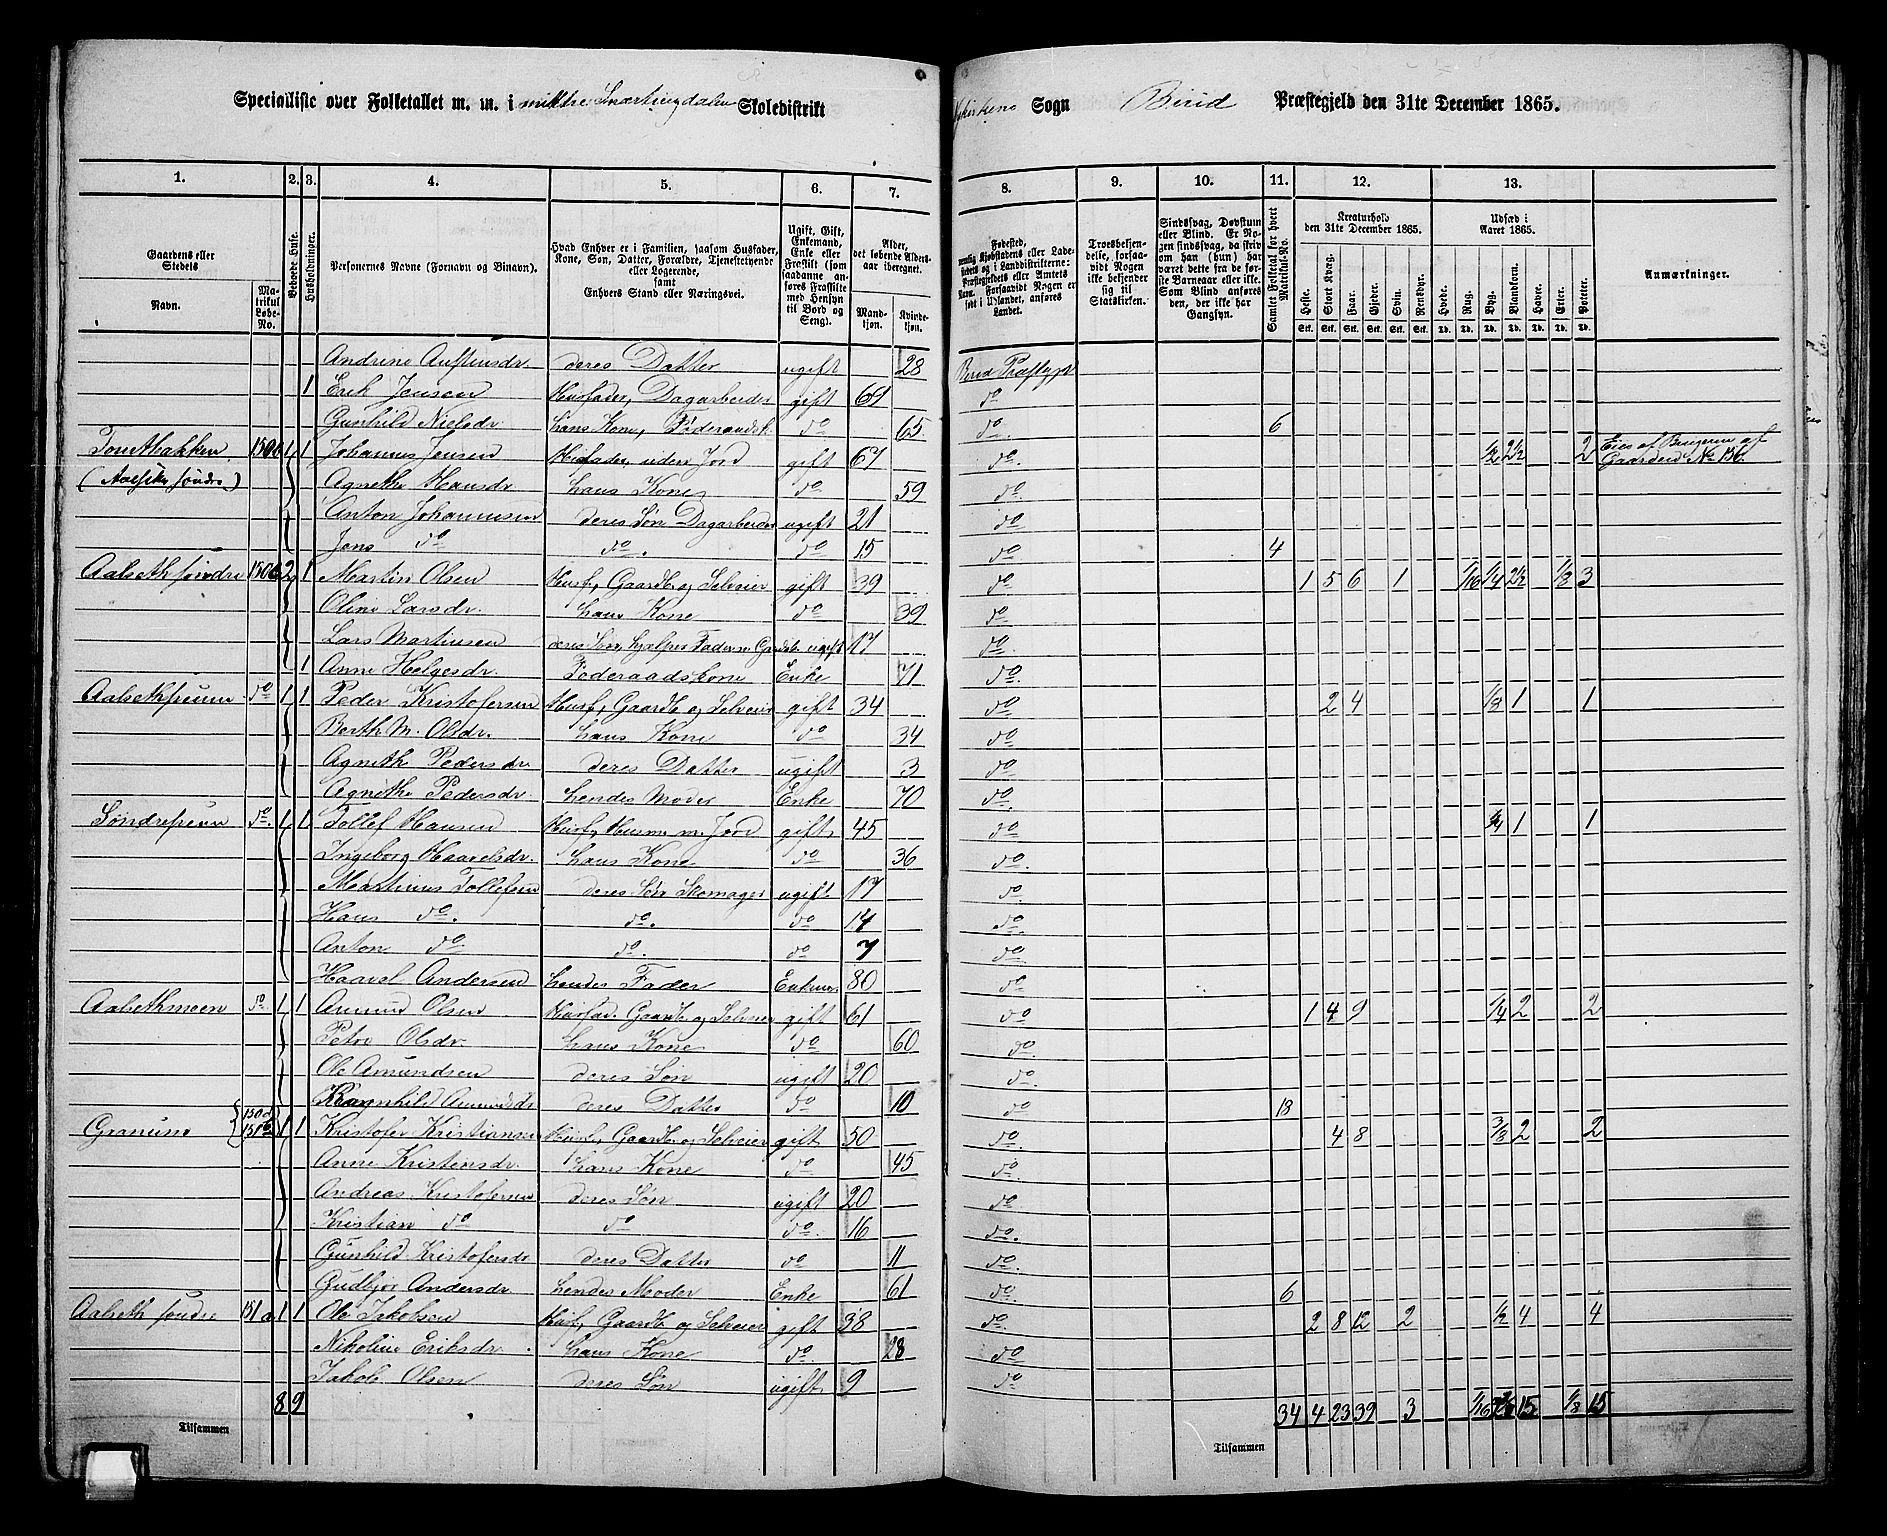 Specialliste over Folketallet m. m. i midtre Snertingdalen Skoledistrikt
Nykirkens Sogn Birid Præstegjeld den 31te December 1865.
1. 2. 3. 4. 5. 6. 7. 8. 9. 10. 11. 12. 13.
Gaardens eller Stedets
Navn.
Matrikul Løbe-No.
Beboede Huse.
Husholdninger.
Personernes Navne (Fornavn og Binavn).
Hvad Enhver er i Familien, saasom Husfader, Kone, Søn, Datter, Forældre, Tjenestetyende eller Logerende,
samt
Enhvers Stand eller Næringsvei.
Ugift, Gift, Enkemand, Enke eller Fraskilt (som saadanne anføres Fraskilte med Hensyn til Bord og Seng).
Alder, det løbende Aldersaar iberegnet.
Mandkjøn. Kvindekjøn.
Fødested, nemlig Kjøbstadens eller Ladestedets og i Landdistrikterne: Præstegjeldets eller Amtets Navn. Forsaavidt Nogen er født i Udlandet, anføres Landet.
Troesbekjendelse, forsaavidt Nogen ikke bekjender sig til Statskirken.
Sindssvag, Døvstum eller Blind. Er Nogen sindssvag, da skrives om han (hun) har været dette fra de første Barneaar eller ikke. Som Blind anføres den, der ikke har Gangsyn.
Samlet Folketal for hvert Matrikul-No.
Kreaturhold den 31te December 1865.
Heste. Stort Kvæg. Faar. Gjeder. Svin. Rensdyr.
Udsæd i Aaret 1865.
Hvede. Rug. Byg. Blandkorn. Havre. Erter. Poteter.
Anmærkninger.
Andrine Austensdr. deres Datter ugift 28 Birid Præstegj.
1 Erik Jensen Husfader, Dagarbeider gift 69 do
Gunhild Nielsdr. hans Kone, Føderaadsk. do 65 do. 6
Tomtbakken 150 1 1 Johannes Jensen Husfader, uden Jord gift 67 do. 1/2 2 1/2 2 Eies af Brugeren af
(Aalseth søndre) Agnethe Hansdr. hans Kone do 59 do. Gaarden No 150
Anton Johannesen deres Søn Dagarbeider ugift 21 do
Jens do do. do 15 do 4
Aalseth søndre 150 2 1 Martin Olsen Husf, Gaardb. og Selveier gift 39 do 1 5 6 1 1/16 1/4 2 1/2 1/8 3
Oline Larsdr. hans Kone do 39 do
Lars Martinsen deres Søn, hjælper Faderen ugift 17 do.
1 Anne Helgesdr. Føderaadskone Enke 71 do.
Aalsethseuun do 1 1 Peder Kristofersen Husf, Gaardb og Selveier gift 34 do 2 4 1/8 1 1
Berth M. Olsdr. hans Kone do 34 do
Agneth Pedersdr. deres Datter ugift 3 do
Agnethe Pedersdr. hendes Moder Enke 70 do.
do. 1 1 Tollef Hansen Husf, Husm. m. Jord gift 45 do 1/4 1 1
Ingeborg Haavelsdr. hans Kone do 36 do.
Martinus Tollefsen deres Søn Skomager ugift 17 do
Hans do. do. do 14 do.
Anton do. do. do 7 do
Haavel Andersen hendes Fader Enkem. 80 do
Aalsethmoen do. 1 1 Amund Olsen Husfad. Gaardb. og Selveier gift 61 do 1 4 9 1/4 2 2
Petre Olsdr. hans Kone do 60 do.
Ole Amundsen deres Søn ugift 20 do.
Ragnhild Amundsdr deres Datter do 10 do 18
Granum 150 d 151 b 1 1 Kristofer Kristiansen Husf, Gaardb. og Selveier gift 50 do. 4 8 3/8 2 2
Anne Kristensdr. hans Kone do 45 do.
Andreas Kristofersen deres Søn ugift 20 do
Kristian do do do. 16 do.
Gunhild Kristofersdr. deres Datter do 11 do.
Gudbjør Andersdr. hendes Moder Enke 61 do. 6
Aalseth søndre 151 a 1 1 Ole Jakobsen Husf, Gaardb og Selveier gift 38 do. 2 8 12 2 1/2 4 4
Nikoline Eriksdr. hans Kone do 28 do
Jakob Olsen deres Søn ugift 9 do
8 9 34 4 23 39 3 1/16 15 1/8 15
Tilsammen Tilsammen